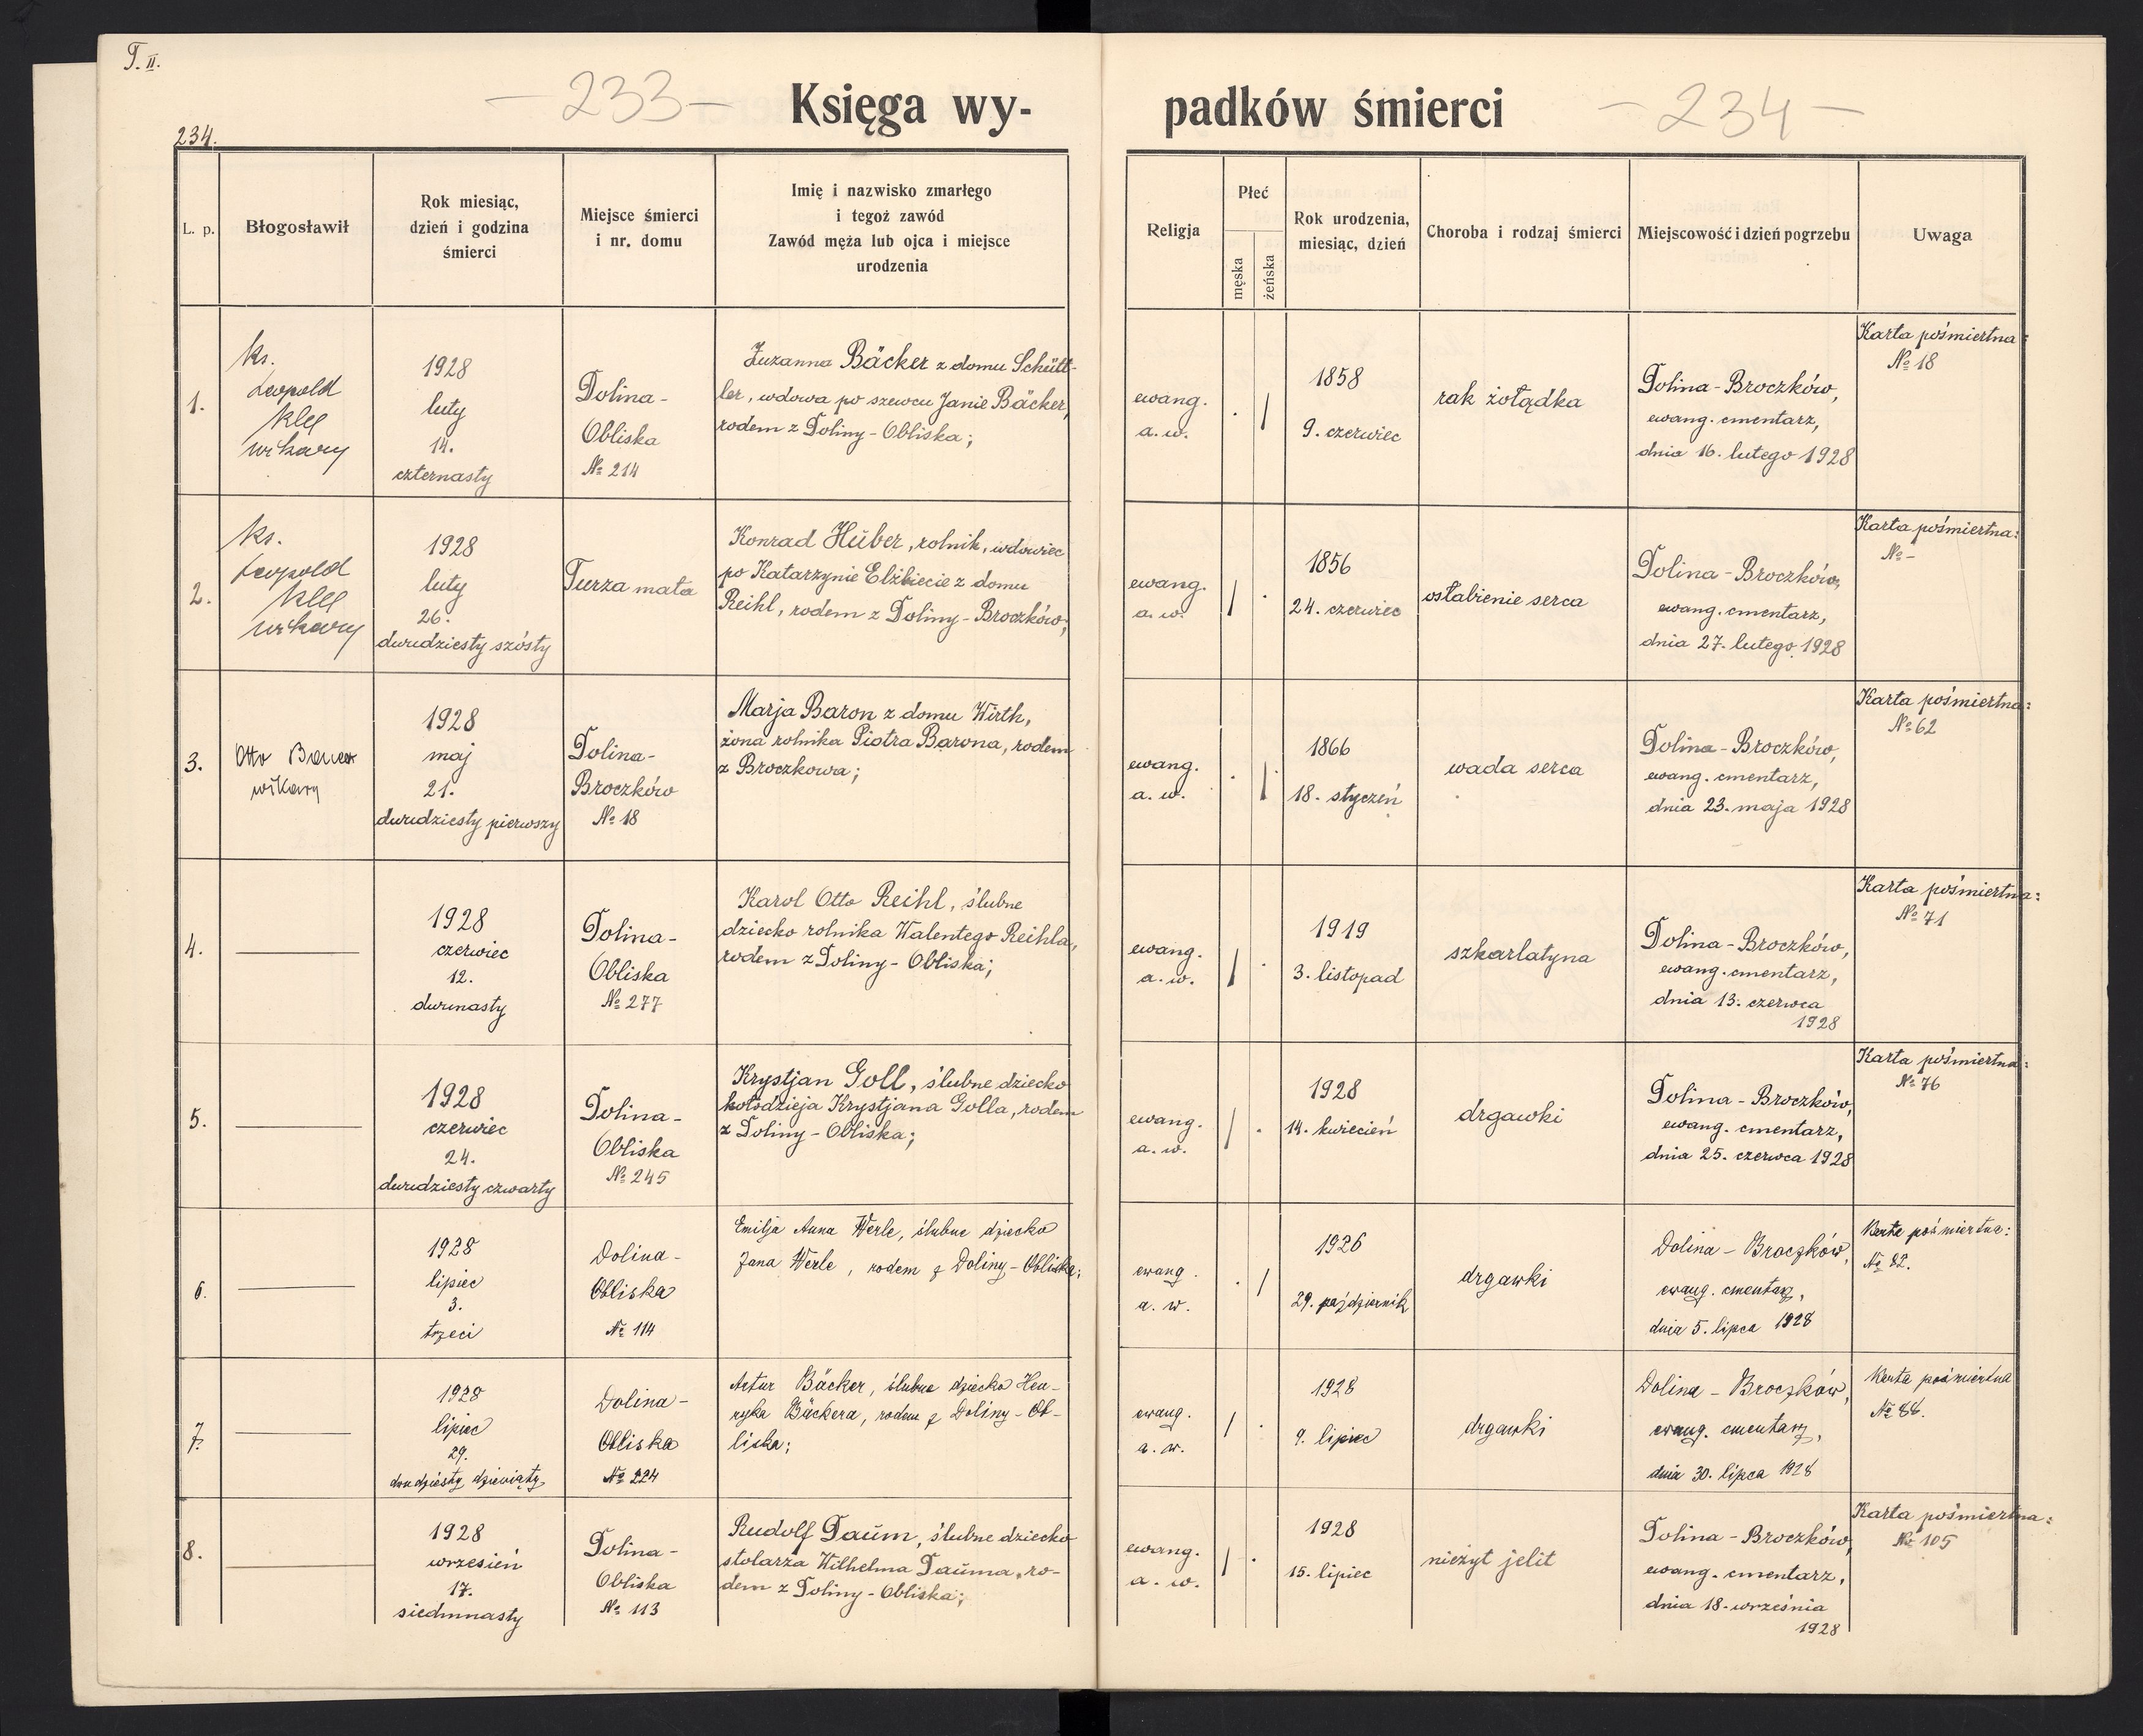 T. II.
— 233 —
Księga wy-
234.
L. p.
Błogosławił
Rok miesiąc,
dzień i godzina
śmierci
Miejsce śmierci
i nr. domu
Imię i nazwisko zmarłego
i tegoż zawód
Zawód męża lub ojca i miejsce
urodzenia
1.
ks.
Leopold
Klee
wikary
1928
luty
14.
czternasty
Dolina-
Obliska
№ 214
Zuzanna Bäcker z domu Schütt-
ler, wdowa po szewcu Janie Bäcker,
rodem z Doliny-Obliska;
2.
ks.
Leopold
Klee
wikary
1928
luty
26.
dwudziesty szósty
Turza mała
Konrad Huber, rolnik, wdowiec
po Katarzynie Elżbiecie z domu
Reihl, rodem z Doliny-Broczków;
3.
Otto Bauer
wikary
1928
maj
21.
dwudziesty pierwszy
Dolina-
Broczków
№ 18
Marja Baron z domu Wirth,
żona rolnika Piotra Barona, rodem
z Broczkowa;
4.
1928
czerwiec
12.
dwunasty
Dolina-
Obliska
№ 277
Karol Otto Reihl, ślubne
dziecko rolnika Walentego Reihla,
rodem z Doliny-Obliska;
5.
1928
czerwiec
24.
dwudziesty czwarty
Dolina-
Obliska
№ 245
Krystjan Goll, ślubne dziecko
kołodzieja Krystjana Golla, rodem
z Doliny-Obliska;
6.
1928
lipiec
3.
trzeci
Dolina-
Obliska
№ 114
Emilja Anna Werle, ślubne dziecko
Jana Werle, rodem z Doliny-Obliska;
7.
1928
lipiec
29.
dwudziesty dziewiąty
Dolina-
Obliska
№ 224
Artur Bäcker, ślubne dziecko Hen-
ryka Bäckera, rodem z Doliny-Ob-
liska;
8.
1928
wrzesień
17.
siedmnasty
Dolina-
Obliska
№ 113
Rudolf Daum, ślubne dziecko
stolarza Wilhelma Dauma, ro-
dem z Doliny-Obliska;
padków śmierci
— 234 —
Religja
Płeć
męska
żeńska
Rok urodzenia,
miesiąc, dzień
Choroba i rodzaj śmierci
Miejscowość i dzień pogrzebu
Uwaga
ewang.
a. w.
1858
9. czerwiec
rak żołądka
Dolina-Broczków,
ewang. cmentarz,
dnia 16. lutego 1928
Karta pośmiertna:
№ 18
ewang.
a. w.
1856
24. czerwiec
osłabienie serca
Dolina-Broczków,
ewang. cmentarz,
dnia 27. lutego 1928
Karta pośmiertna:
№ -
ewang.
a. w.
1866
18. styczeń
wada serca
Dolina-Broczków,
ewang. cmentarz,
dnia 23. maja 1928
Karta pośmiertna:
№ 62
ewang.
a. w.
1919
3. listopad
szkarlatyna
Dolina-Broczków,
ewang. cmentarz,
dnia 13. czerwca
1928
Karta pośmiertna:
№ 71
ewang.
a. w.
1928
14. kwiecień
drgawki
Dolina-Broczków,
ewang. cmentarz,
dnia 25. czerwca 1928
Karta pośmiertna:
№ 76
ewang.
a. w.
1926
29. październik
drgawki
Dolina-Broczków,
ewang. cmentarz,
dnia 5. lipca 1928
Karta pośmiertna:
№ 82.
ewang.
a. w.
1928
9. lipiec
drgawki
Dolina-Broczków,
ewang. cmentarz,
dnia 30. lipca 1928
Karta pośmiertna
№ 88.
ewang.
a. w.
1928
15. lipiec
nieżyt jelit
Dolina-Broczków,
ewang. cmentarz,
dnia 18. września
1928
Karta pośmiertna:
№ 105